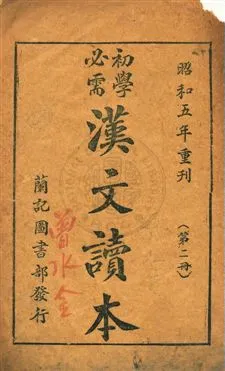 昭和五年重刊
(第二冊)
初學
必需
漢文讀本
曾水金
蘭記圖書部發行